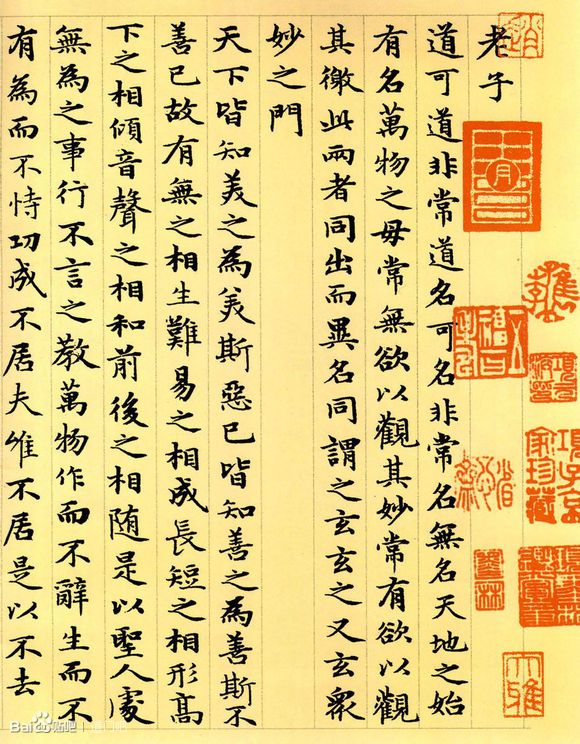 老子
道可道非常道名可名非常名無名天地之始
有名萬物之母常無欲以觀其妙常有欲以觀
其徼此兩者同出而異名同謂之玄玄之又玄眾
妙之門
天下皆知美之為美斯惡已皆知善之為善斯不
善已故有無之相生難易之相成長短之相形高
下之相傾音聲之相和前後之相随是以聖人處
無為之事行不言之教萬物作而不辭生而不
有為而不恃功成不居夫惟不居是以不去
項子京家珍藏
Bai 贴吧